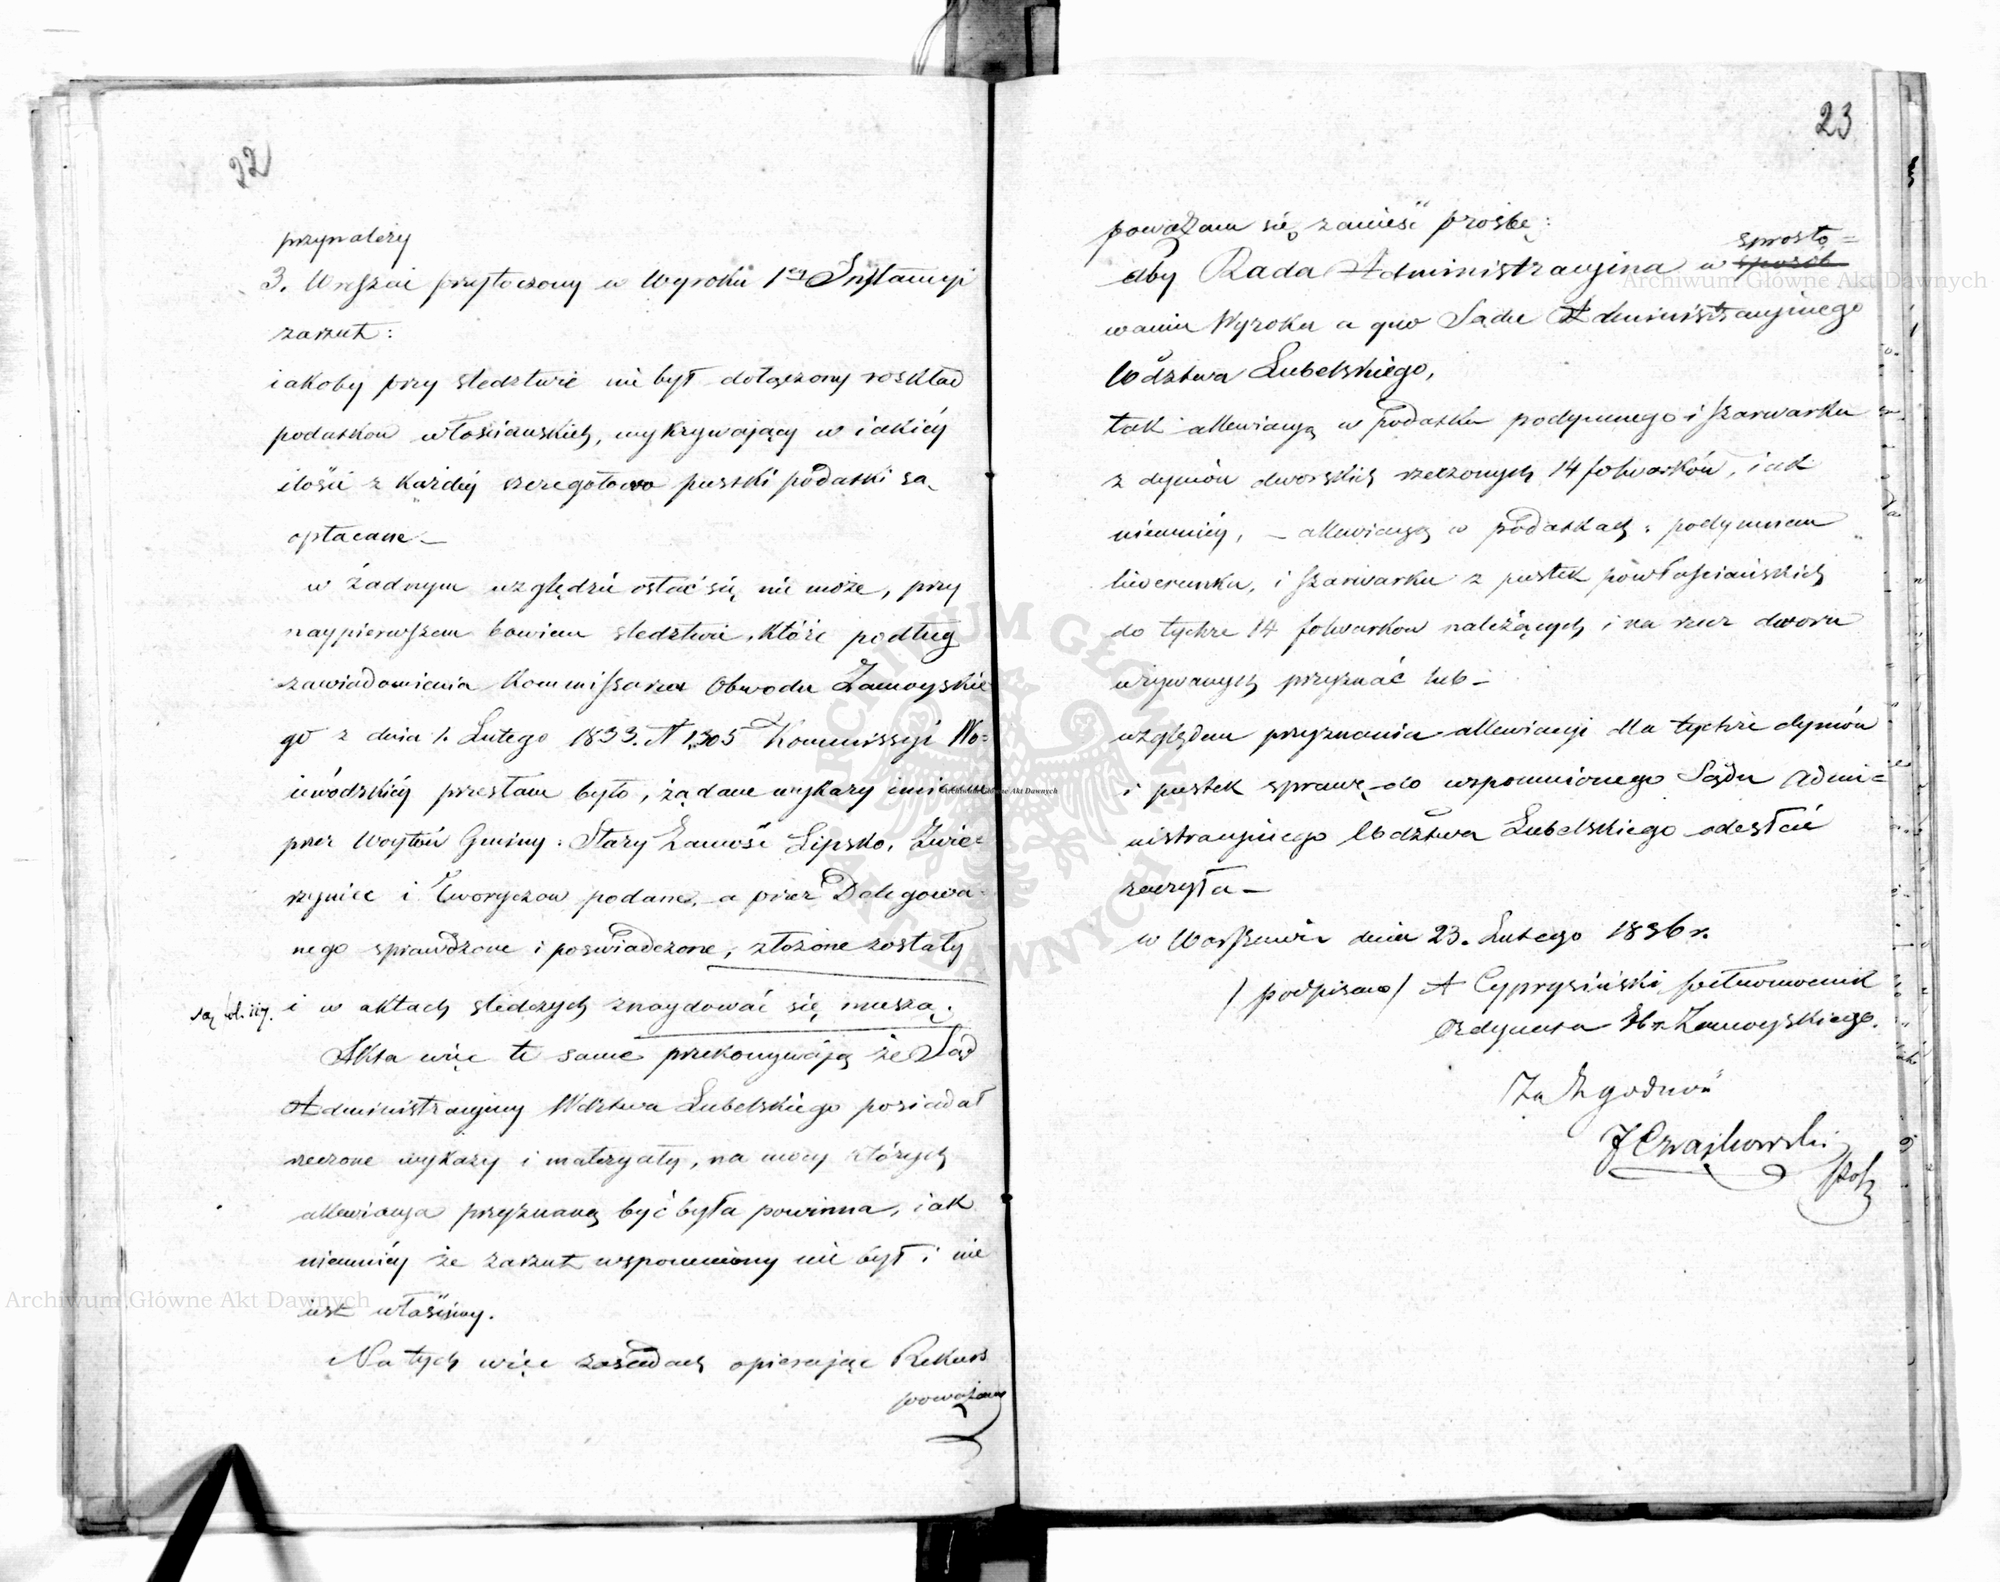 22
przynależy
3. Wreszcie przytoczony w Wyroku 1ey Instancyi
zarzut:
iakoby przy sledztwie nie był dołączony roskład
podatkow włościanskich, wykrywaiący w iakiéy
ilości z każdéy szczegolowo pustki podatki są
opłacane –
w żadnym względzie ostać się nie może, przy
naypierwszem bowiem sledztwie, które podług
zawiadomienia Kommissarza Obwodu Zamoyskie
go z dnia 1. Lutego 1833. N 1,305 Kommissyi Wo=
iewódzkiéy przesłane było, żądane wykazy imienne
przez Woytów Gminy: Stary Zamość Lipsko, Zwie=
rzyniec i Tworyczow podane, a przez Delegowa=
nego sprawdzone i poświadczone, złożone zostały
i w aktach sledczych znaydować się muszą.
Akta więc te same przekonywaią że Sąd
Administracyiny Wdztwa Lubelskiego posiadał
rzeczone wykazy i materyały, na mocy których
allewiacya przyznaną być była powinna, iak
niemniéy że zarzut wspomniony nie był i nie
iest właściwy.
Na tych więc zasadach opieraiąc Rekurs
poważam
23
poważam się zanieść prośbę:
sprosto=
aby Rada Administracyina w sposób
waniu Wyroku a quo Sądu Administracyinego
Wdztwa Lubelskiego,
tak allewiacyą w podatku podymnego i szarwarku
z dymów dworskich rzeczonych 14 folwarków, iak
niemniéy, – allewiacyą w podatkach: podymnem
liwerunku, i szarwarku z pustek powłościańskich
do tychże 14 folwarkow należących i na rzecz dworu
używanych przyznać lub –
względem przyznania allewiacyi dla tychże dymów
i pustek sprawę do wspomnionego Sądu Admi=
nistracyinego Wdztwa Lubelskiego odesłać
raczyła –
w Warszawie dnia 23. Lutego 1836 r.
/ podpisano / A Cyprysiński pełnomocnik
Ordynata Hr. Zamoyskiego.
Za Zgodność
J Czajkowski
Archiwum Główne Akt Dawnych
Archiwum Główne Akt Dawnych
Archiwum Główne Akt Dawnych
ARCHIWUM GŁÓWNE AKT DAWNYCH